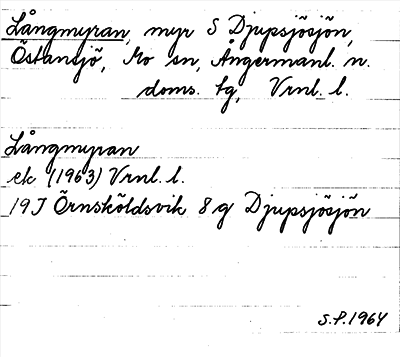 Långmyran, myr S Djupsjösjön,
Östansjö, Mo sn, Ångermanl. n.
doms. tg, Vrnl. l.
Långmyran
ek (1963) Vrnl. l.
19J Örnsköldsvik 8g Djupsjösjön
S.P. 1964